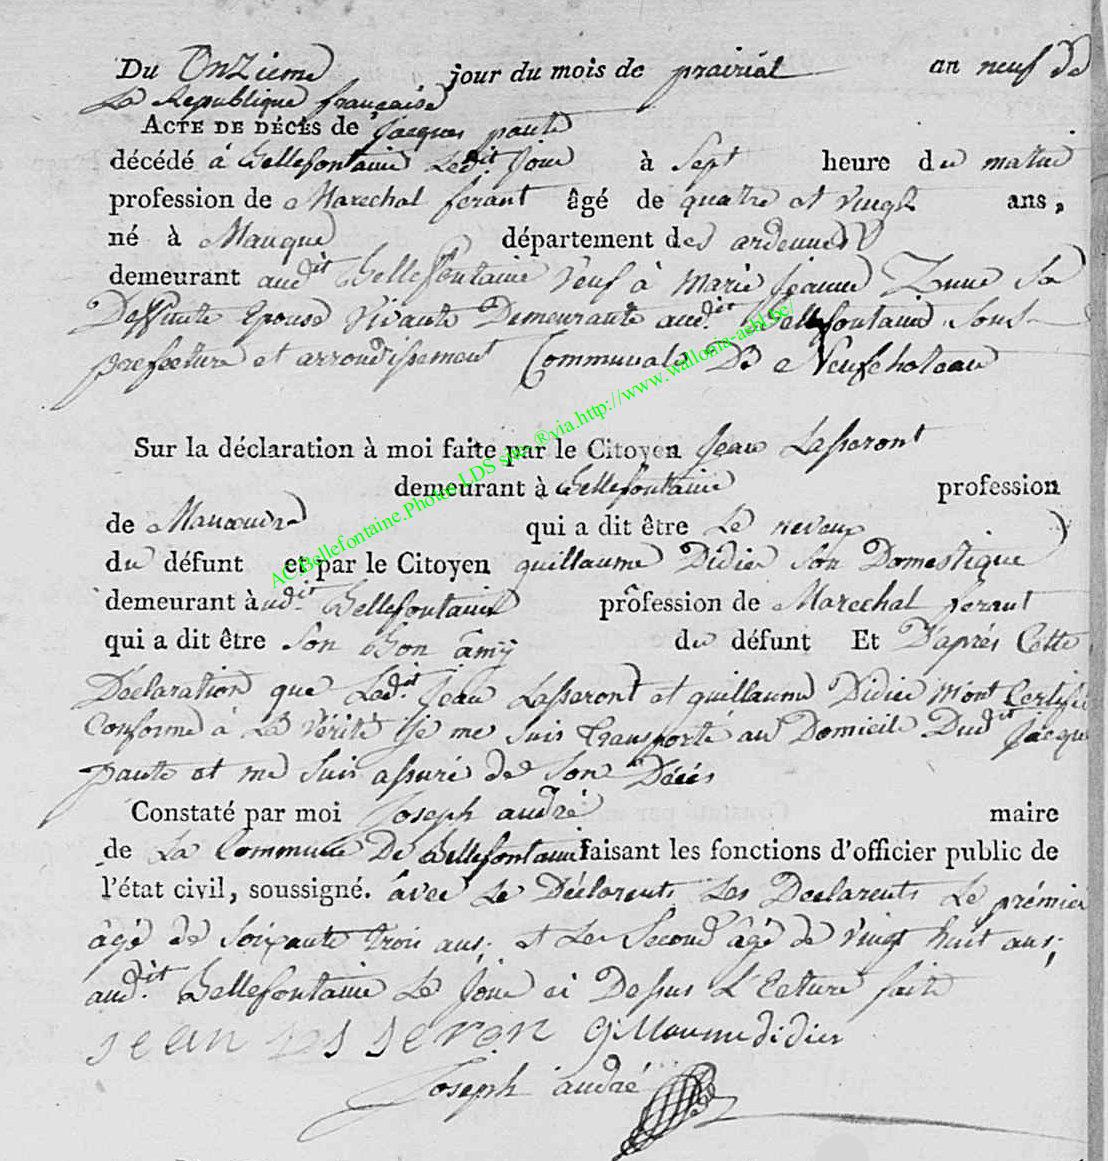 Du Onzieme jour du mois de prairial an neuf de
La Republique francaise
ACTE DE DÉCÈS de Jacques paute
décédé à Bellefontaine Ledit Jour à Sept heure du matin
profession de Marechal ferant âgé de quatre et vingt ans,
né à département des ardennes
demeurant audit Bellefontaine Veuf à Marie Jeanne Sa
Deffunte Epouse Vivante Demeurante audit Bellefontaine Sous
prefecture et arrondissement Communale De Neufchateau
Sur la déclaration à moi faite par le Citoyen Jean Lasseront
demeurant à Bellefontaine profession
de Manouvre qui a dit être Le neveux
du défunt et par le Citoyen guillaume Didier Son Domestique
demeurant àudit Bellefontaine profession de Marechal ferant
qui a dit être Son Bon âmÿ du défunt Et D'aprés Cette
Declaration que Ledit Jean Lasseront et guillaume Didier M'ont Certifié
Conforme à La Vérité Je me Suis Transporté au Domicile Dudit Jacque
paute et me Suis assuré de Son Décés
Constaté par moi Joseph andré maire
de La Commune De Bellefontaine faisant les fonctions d'officier public de
l'état civil, soussigné. avec Le Déclarents Les Declarents Le prémier
âgé de Soixante trois ans; et Le Second âgé de Vingt huit ans;
audit Bellefontaine Le Jour ci Dessus L'Ecture faite
jean lasseron gillaume didier
Joseph andré
AC.Bellefontaine.Photos LDS sur ®via.http://www.wallonia-asbl.be/